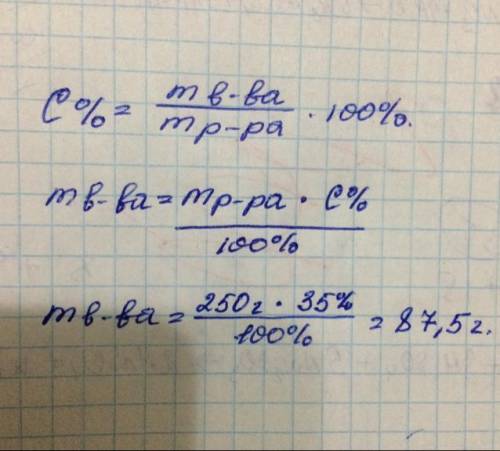 C% = m в-ва / m р-ра · 100%.
m в-ва = m р-ра · C% / 100%
m в-ва = 250 г · 35% / 100% = 87,5 г.